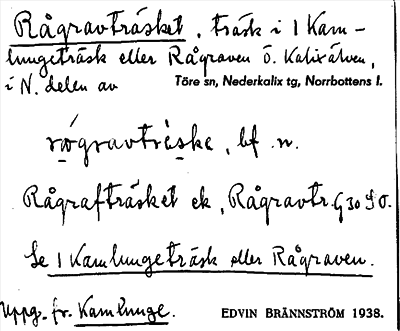 Rågravträsket, träsk i 1 Kam-
lungeträsk eller Rågraven Ö. Kalixälven,
i N. delen av Töre sn, Nederkalix tg, Norrbottens l.
rǫgravträ̀ske, bf. n.
Rågrafträsket ek, Rågravtr. G 30 S O.
Se 1 Kamlungeträsk eller Rågraven.
Uppg. fr. Kamlunge. EDVIN BRÄNNSTRÖM 1938.